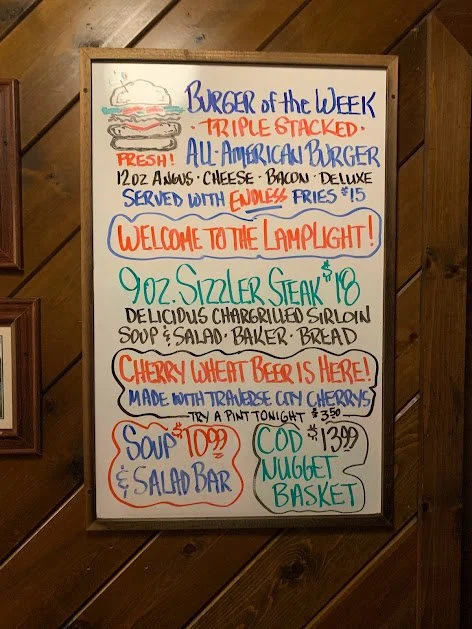 BURGER of the WEEK
· TRIPLE STACKED ·
FRESH! ALL-AMERICAN BURGER
12OZ ANGUS · CHEESE · BACON · DELUXE
SERVED WITH ENDLESS FRIES $15
WELCOME TO THE LAMPLIGHT!
9OZ. SIZZLER STEAK $18
DELICIOUS CHARGRILLED SIRLOIN
SOUP & SALAD · BAKER · BREAD
CHERRY WHEAT BEER IS HERE!
MADE WITH TRAVERSE CITY CHERRYS
TRY A PINT TONIGHT $3.50
SOUP $10.99
& SALAD BAR
COD $13.99
NUGGET
BASKET